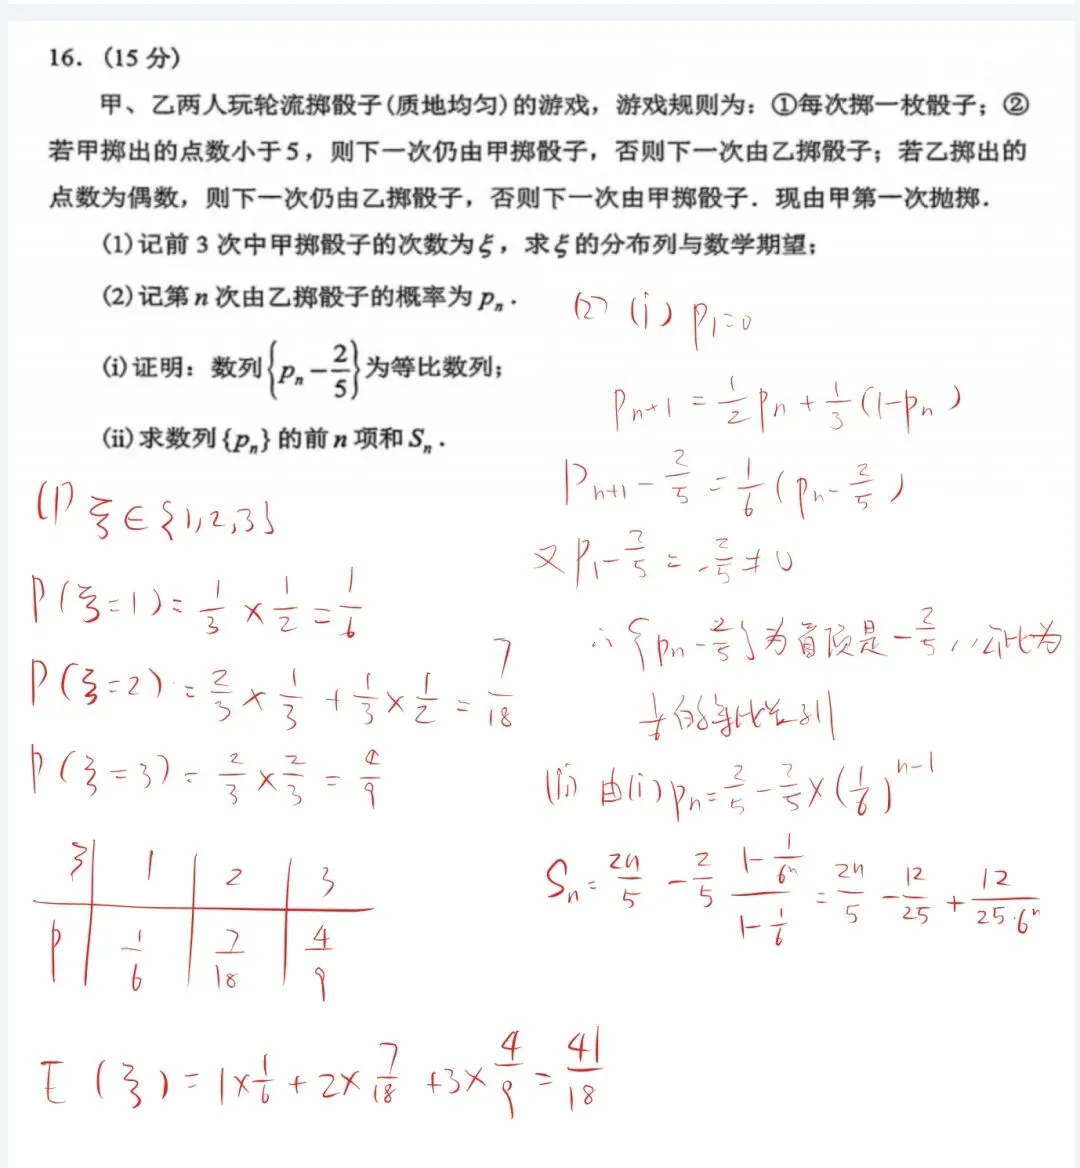 16. (15 分)
甲、乙两人玩轮流掷骰子(质地均匀)的游戏，游戏规则为：①每次掷一枚骰子；②
若甲掷出的点数小于5，则下一次仍由甲掷骰子，否则下一次由乙掷骰子；若乙掷出的
点数为偶数，则下一次仍由乙掷骰子，否则下一次由甲掷骰子．现由甲第一次抛掷．
(1)记前 3 次中甲掷骰子的次数为ξ，求ξ的分布列与数学期望；
(2)记第 n 次由乙掷骰子的概率为 pₙ．
(i)证明：数列{pₙ - 2/5}为等比数列；
(ii)求数列{pₙ}的前 n 项和 Sₙ．
(1) ξ∈{1,2,3}
P(ξ=1)= 1/3 × 1/2 = 1/6
P(ξ=2)= 2/3 × 1/3 + 1/3 × 1/2 = 7/18
P(ξ=3)= 2/3 × 2/3 = 4/9
ξ 1 2 3
P 1/6 7/18 4/9
E(ξ)= 1×1/6 + 2×7/18 +3×4/9 = 41/18
(2) (i) p₁=0
pₙ₊₁ = 1/2 pₙ + 1/3 (1-pₙ)
pₙ₊₁ - 2/5 = 1/6 (pₙ - 2/5)
又 p₁ - 2/5 = -2/5 ≠ 0
∴ {pₙ - 2/5} 为首项是 -2/5，公比为
1/6 的等比数列
(ii) 由(i) pₙ = 2/5 - 2/5 × (1/6)ⁿ⁻¹
Sₙ = 2n/5 - 2/5 (1 - 1/6ⁿ)/(1 - 1/6) = 2n/5 - 12/25 + 12/(25·6ⁿ)